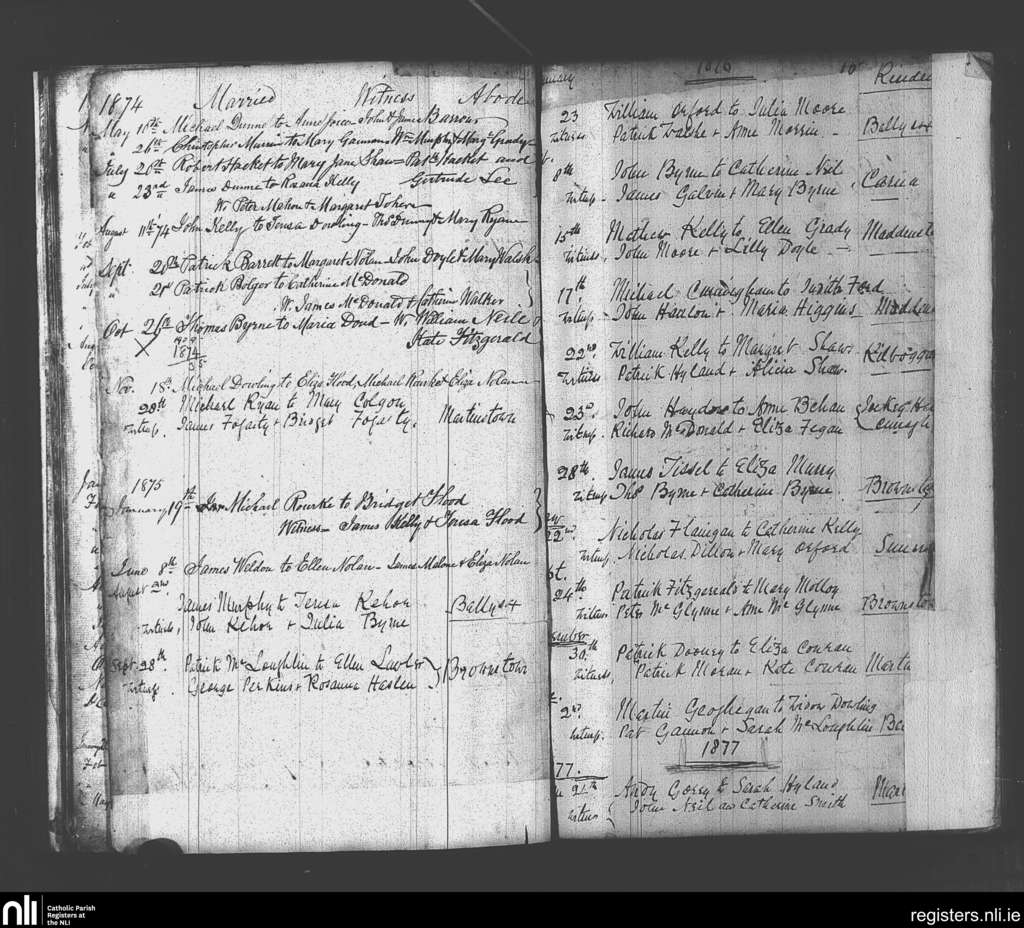 1874 Married Witness Abode
May 16th Michael Dunne to Anne Joice John & Jane Barrows
" 26th Christopher Murrin to Mary Gannon Wm Murphy & Mary Grady
July 20th Robert Hacket to Mary Jane Shaw = Patk Hacket and
Gertrude Lee
" 23rd James Dunne to Roxana Kelly
W. Peter Mahon to Margaret Toker
August 11th 74 John Kelly to Teresa Dowling - Ths Dunny & Mary Ryan
Sept. 20th Patrick Barrett to Margaret Nolan John Doyle & Mary Walsh
" 21st Patrick Bolger to Catherine McDonald
W. James McDonald & Catherine Walker
Oct 26th Thomas Byrne to Maria Doud - W. William Neile
Kate Fitzgerald
1874
Nov. 18th Michael Dowling to Eliza Flood, Michael Rourke & Eliza Nolan
28th Michael Ryan to Mary Colgan
Witness. James Fogarty & Bridget Fogarty. Martinstown
1875
January 19th Michael Rourke to Bridget Flood
Witness - James Kelly & Teresa Flood
June 8th James Weldon to Ellen Nolan - James Malone & Eliza Nolan
August 2nd
James Murphy to Teresa Kehoe
Witness, John Kehoe & Julia Byrne Ballysax
Sept. 28th Patrick McLoughlin to Ellen Lawlor
Witness. George Perkins & Rosanna Haslen Brownstown
1876
23 William Orford to Julia Moore
Witness Patrick Walshe & Anne Morrin - Ballysax
8th John Byrne to Catherine Neil
Witness - James Galvin & Mary Byrne
15th Mathew Kelly to Ellen Grady
Witness, John Moore & Lilly Doyle -
17th Michael Cunningham to Judith Ford
Witness - John Hanlon & Maria Higgins
22nd William Kelly to Margret Shaw
Witness Patrick Hyland & Alicia Shaw.
23rd John Haydon to Anne Behan
Witness. Richard McDonald & Eliza Fegan
28th James Tissel to Eliza Murry
Witness Ths Byrne & Catherine Byrne
22nd Nicholas Flanigan to Catherine Kelly
Witness. Nicholas Dillon & Mary Orford
24th Patrick Fitzgerald to Mary Molloy
Witness Peter McGlynne & Anne McGlynne Brownsto
30th Patrick Doorry to Eliza Conran
Witness, Patrick Moran & Kate Conran Marti
2nd Martin Geoghegan to Widow Dowling
Witness. Pat Gannon & Sarah McLoughlin
1877
77.
21th Andy Gorry to Sarah Hyland
Witness John Neil and Catherine Smith
nli
Catholic Parish
Registers at
the NLI
registers.nli.ie